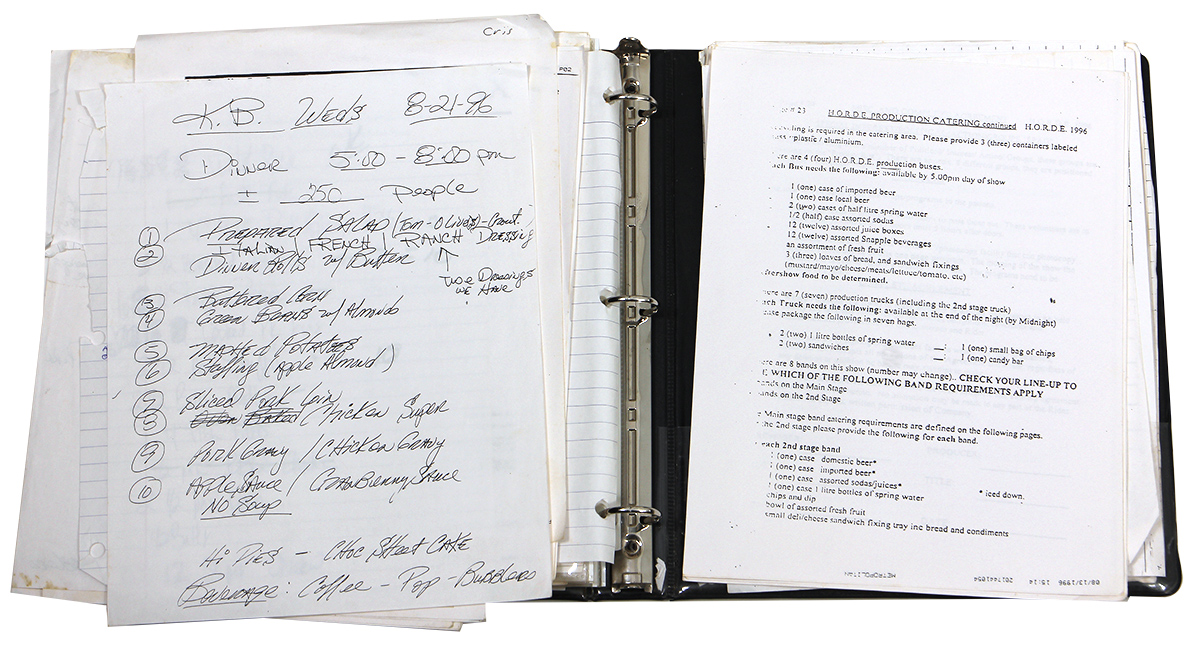 Cris
P02
K.B. Weds 8-21-96
Dinner 5:00 - 8:00 pm
± 250 people
1 Prepared Salad (Tom-Olives)-Crout.
Italian / French / Ranch Dressing
2 Dinner Rolls w/ Butter
use Dressings
we Have
3 Buttered Corn
4 Green Beans w/ Almonds
5 Mashed Potatoes
6 Stuffing (Apple Almond)
7 Sliced Pork Loin
8 Oven Baked Chicken
9 Pork Gravy / Chicken Gravy
10 Apple Sauce /
No Soup
Hi Pies - Choc Sheet Cake
Beverage: Coffee - Pop - Bubblers
# 23 H.O.R.D.E. PRODUCTION CATERING continued H.O.R.D.E. 1996
is required in the catering area. Please provide 3 (three) containers labeled
plastic / aluminium.
are 4 (four) H.O.R.D.E. production buses.
Bus needs the following: available by 5.00pm day of show
1 (one) case of imported beer
1 (one) case local beer
2 (two) cases of half litre spring water
1/2 (half) case assorted sodas
12 (twelve) assorted juice boxes
12 (twelve) assorted Snapple beverages
an assortment of fresh fruit
3 (three) loaves of bread, and sandwich fixings
(mustard/mayo/cheese/meats/lettuce/tomato, etc)
ftershow food to be determined.
ere are 7 (seven) production trucks (including the 2nd stage truck)
ach Truck needs the following: available at the end of the night (by Midnight)
ease package the following in seven bags.
2 (two) 1 litre bottles of spring water 1 (one) small bag of chips
2 (two) sandwiches 1 (one) candy bar
ere are 8 bands on this show (number may change).. CHECK YOUR LINE-UP TO
WHICH OF THE FOLLOWING BAND REQUIREMENTS APPLY
ands on the Main Stage
ands on the 2nd Stage
Main stage band catering requirements are defined on the following pages.
the 2nd stage please provide the following for each band.
each 2nd stage band
1 (one) case domestic beer*
1 (one) case imported beer*
1 (one) case assorted sodas/juices* * iced down.
1 (one) case 1 litre bottles of spring water
chips and dip
bowl of assorted fresh fruit
small deli/cheese sandwich fixing tray inc bread and condiments
08/13/1996 15:14 2017441054 METROPOLITAN